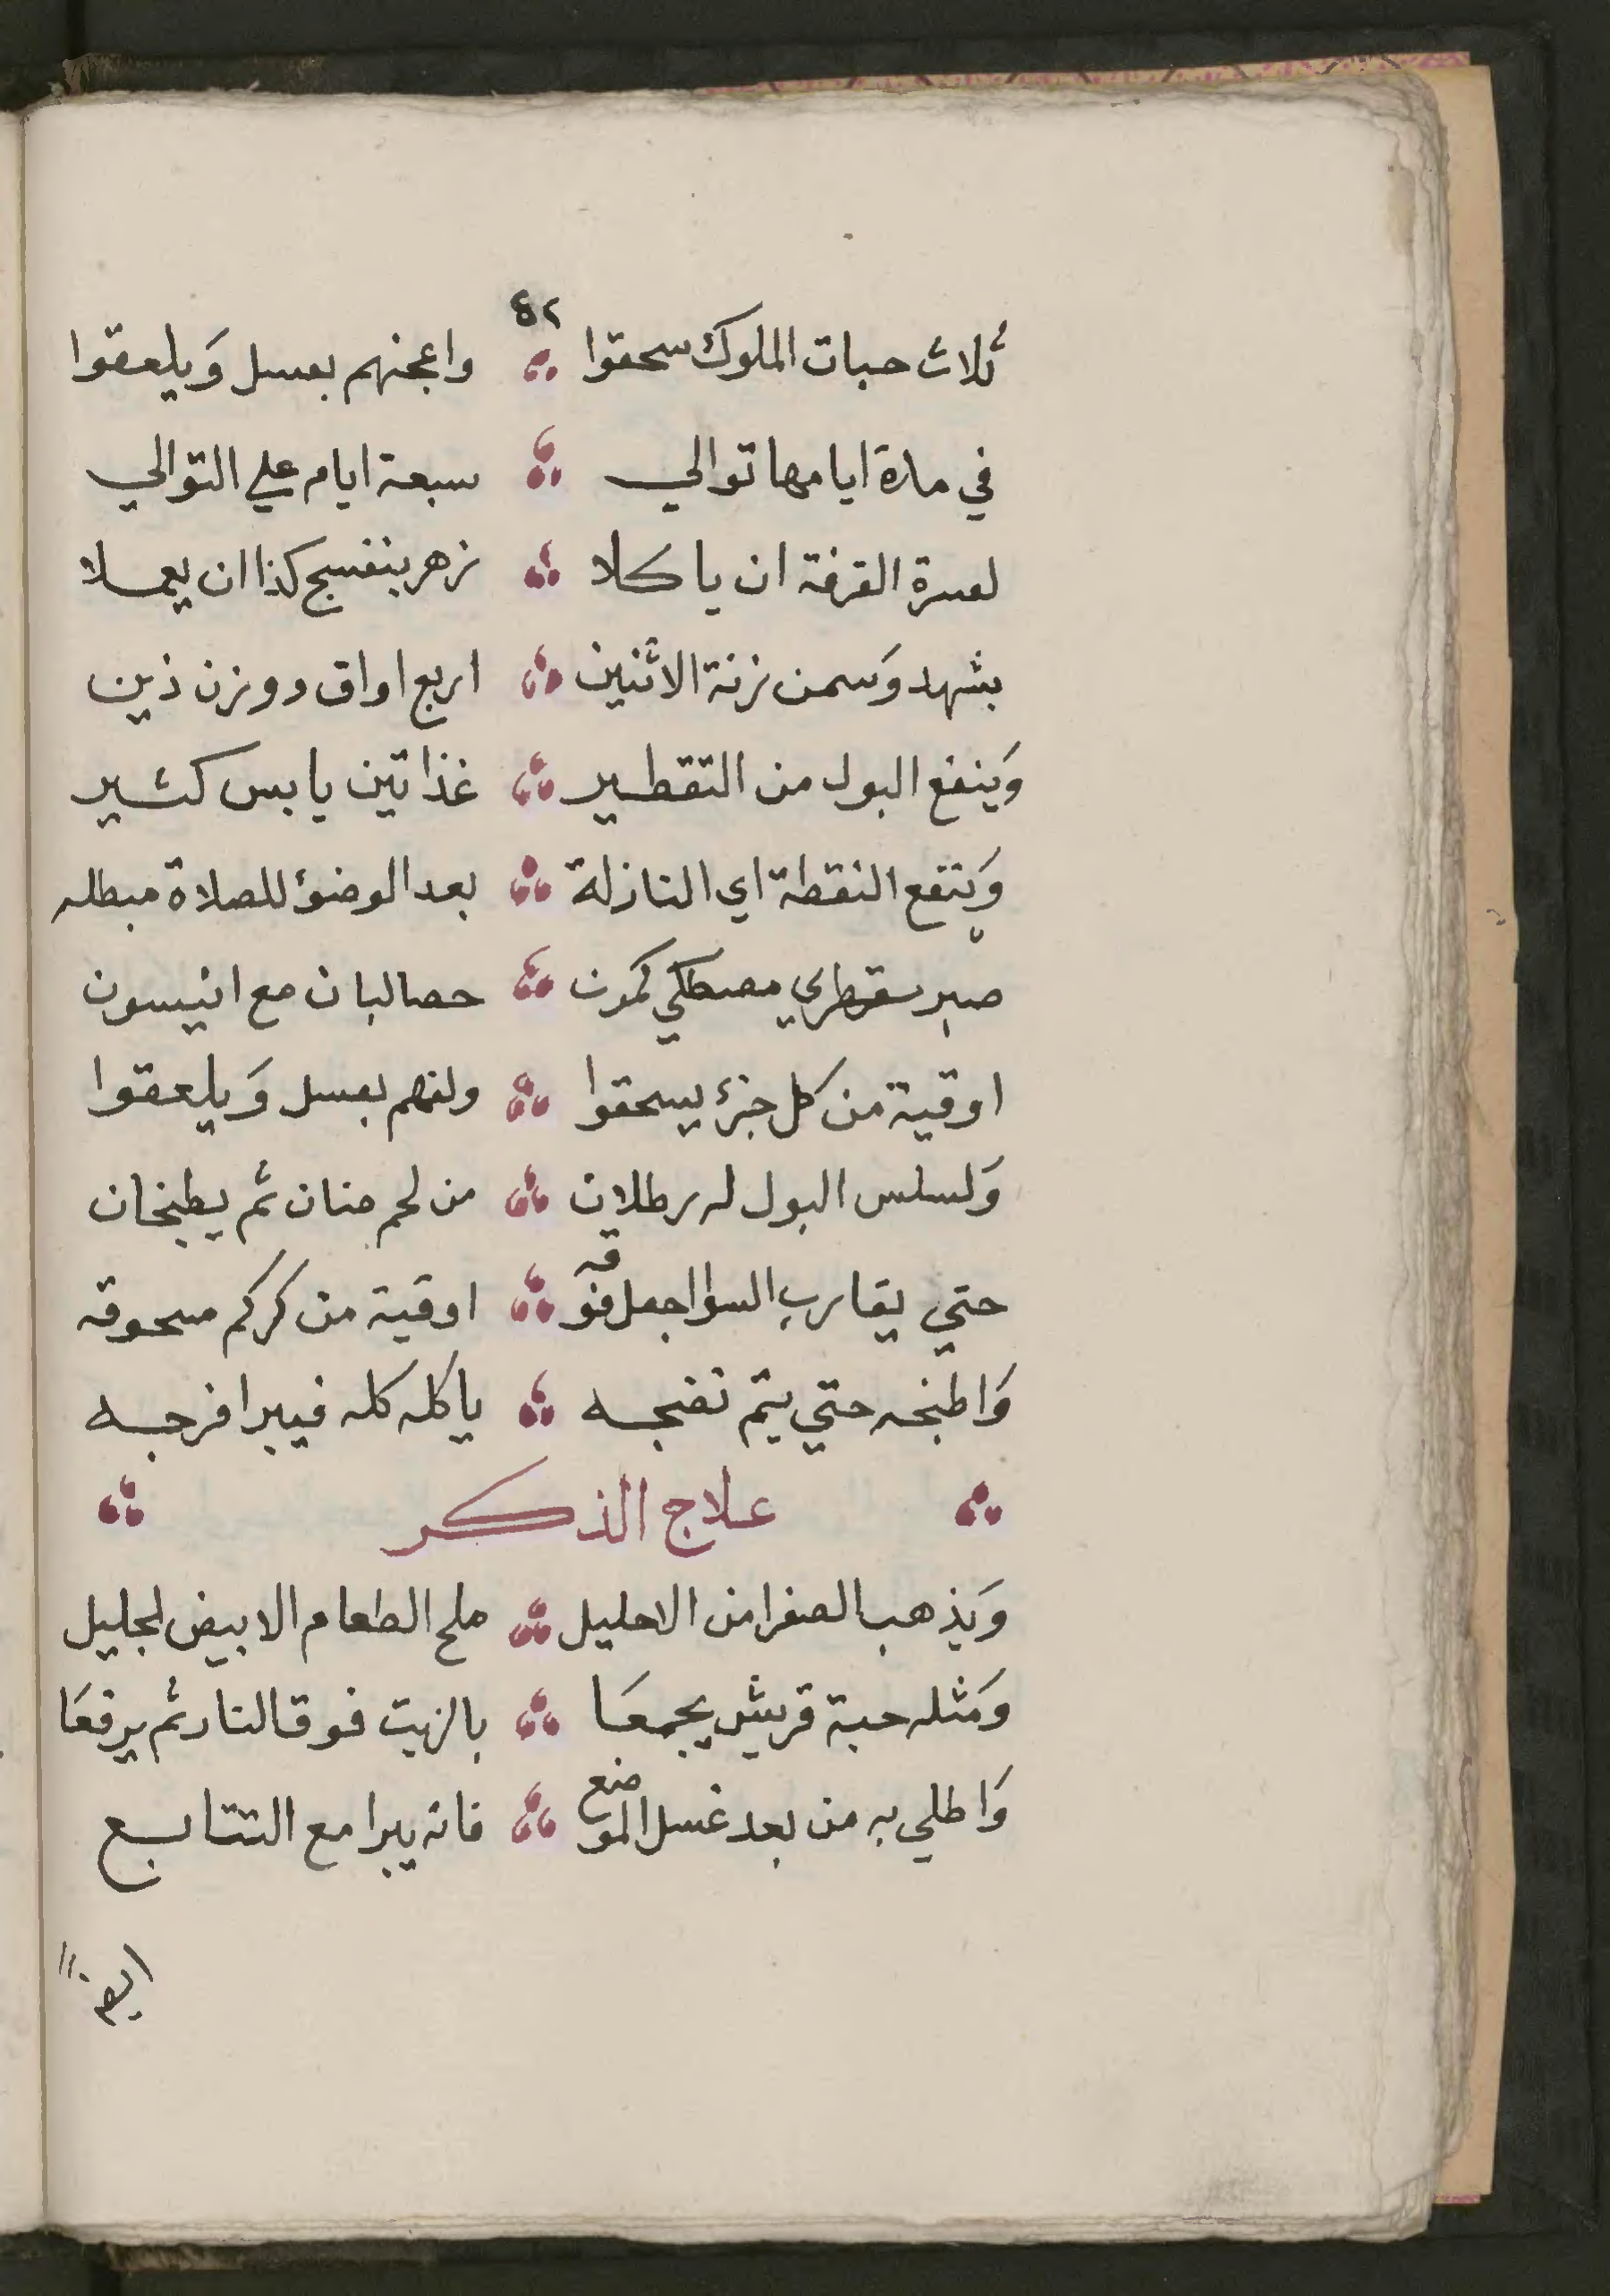 ٤٢
ثلاث حبات الملوك سحقوا واعجنهم بعسل وَيلعقوا
في مدة ايامها توالي سبعة ايام علي التوالي
لعسرة القرفة ان ياكلا زهر بنفسج كذا ان يعملا
بشهد وَسمن زنة الاثنين اربع اواق ووزن ذين
وَينفع البول من التقطير غذا تين يابس كثير
وَينفع النقطة اي النازلة بعد الوضؤ للصلاة مبطله
صبر سقطري مصطكي كمون حصالبان مع انيسون
اوقية من كل جزء يسحقوا ولفهم بعسل وَيلعقوا
وَلسلس البول له رطلان من لحم ضان ثم يطبخان
حتي يقارب السوا اجعل فوقه اوقية من كركم مسحوقه
وَاطبخه حتي يتم نضجه ياكله كله فيبرا فرجه
علاج الذكر
وَيذهب الصفرا من الاحليل ملح الطعام الابيض الجليل
وَمثله حبة قريش يجمعَا بالزيت فوق النار ثم يرفعَا
وَاطلي به من بعد غسل الموضع فانه يبرا مع التتابع